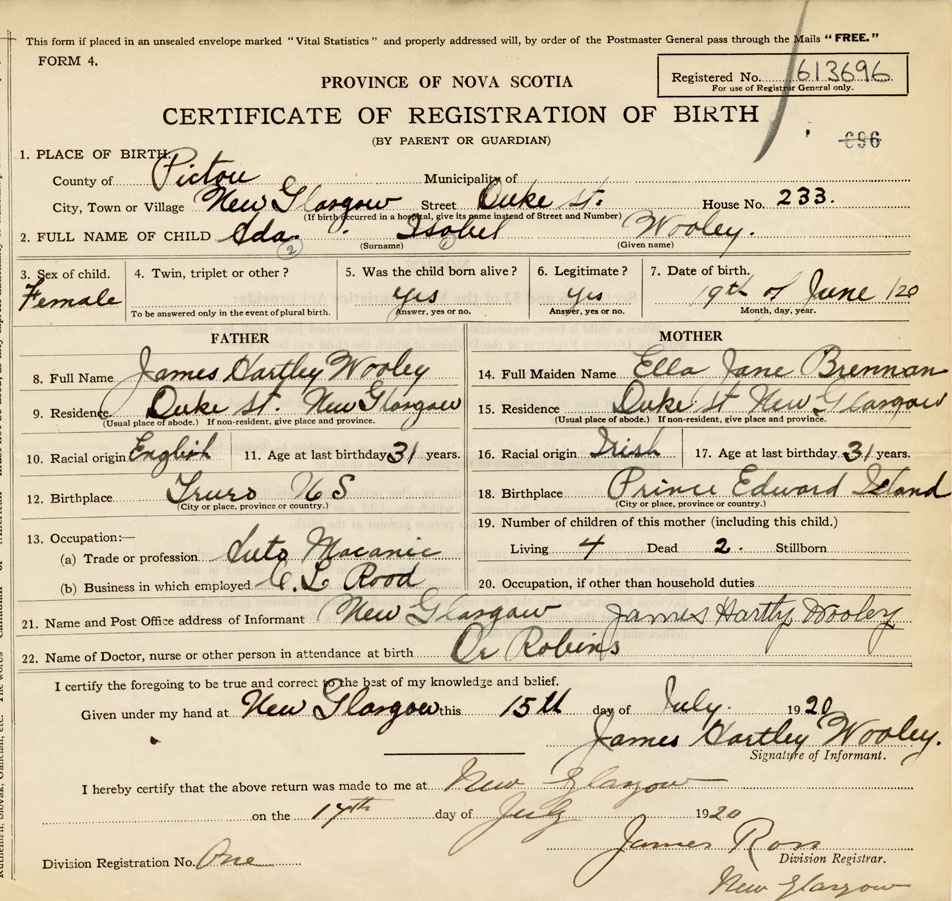 This form if placed in an unsealed envelope marked "Vital Statistics" and properly addressed will, by order of the Postmaster General pass through the Mails "FREE."
FORM 4.
Registered No. 613696
For use of Registrar General only.
PROVINCE OF NOVA SCOTIA
CERTIFICATE OF REGISTRATION OF BIRTH
(BY PARENT OR GUARDIAN)
696
1. PLACE OF BIRTH.
County of Pictou Municipality of
City, Town or Village New Glasgow Street Duke St. House No. 233.
(If birth occurred in a hospital, give its name instead of Street and Number)
2. FULL NAME OF CHILD Ada. Isobel Wooley.
(Surname) (Given name)
2 1
3. Sex of child. 4. Twin, triplet or other? 5. Was the child born alive? 6. Legitimate? 7. Date of birth.
Female yes yes 19th of June /20
To be answered only in the event of plural birth. Answer, yes or no. Answer, yes or no. Month, day, year.
FATHER
8. Full Name James Hartley Wooley
9. Residence Duke St. New Glasgow
(Usual place of abode.) If non-resident, give place and province.
10. Racial origin English 11. Age at last birthday 31 years.
12. Birthplace Truro N S
(City or place, province or country.)
13. Occupation:—
(a) Trade or profession Auto Macanic
(b) Business in which employed C. L Rood
MOTHER
14. Full Maiden Name Ella Jane Brennan
15. Residence Duke St New Glasgow
(Usual place of abode.) If non-resident, give place and province.
16. Racial origin Irish 17. Age at last birthday 31 years.
18. Birthplace Prince Edward Island
(City or place, province or country.)
19. Number of children of this mother (including this child.)
Living 4 Dead 2. Stillborn
20. Occupation, if other than household duties
21. Name and Post Office address of Informant New Glasgow James Hartly Wooley
22. Name of Doctor, nurse or other person in attendance at birth Dr Robins
I certify the foregoing to be true and correct to the best of my knowledge and belief.
Given under my hand at New Glasgow this 15th day of July. 1920
James Hartley Wooley.
Signature of Informant.
I hereby certify that the above return was made to me at New Glasgow
on the 17th day of July 1920
James Ross
Division Registration No. One Division Registrar.
New Glasgow